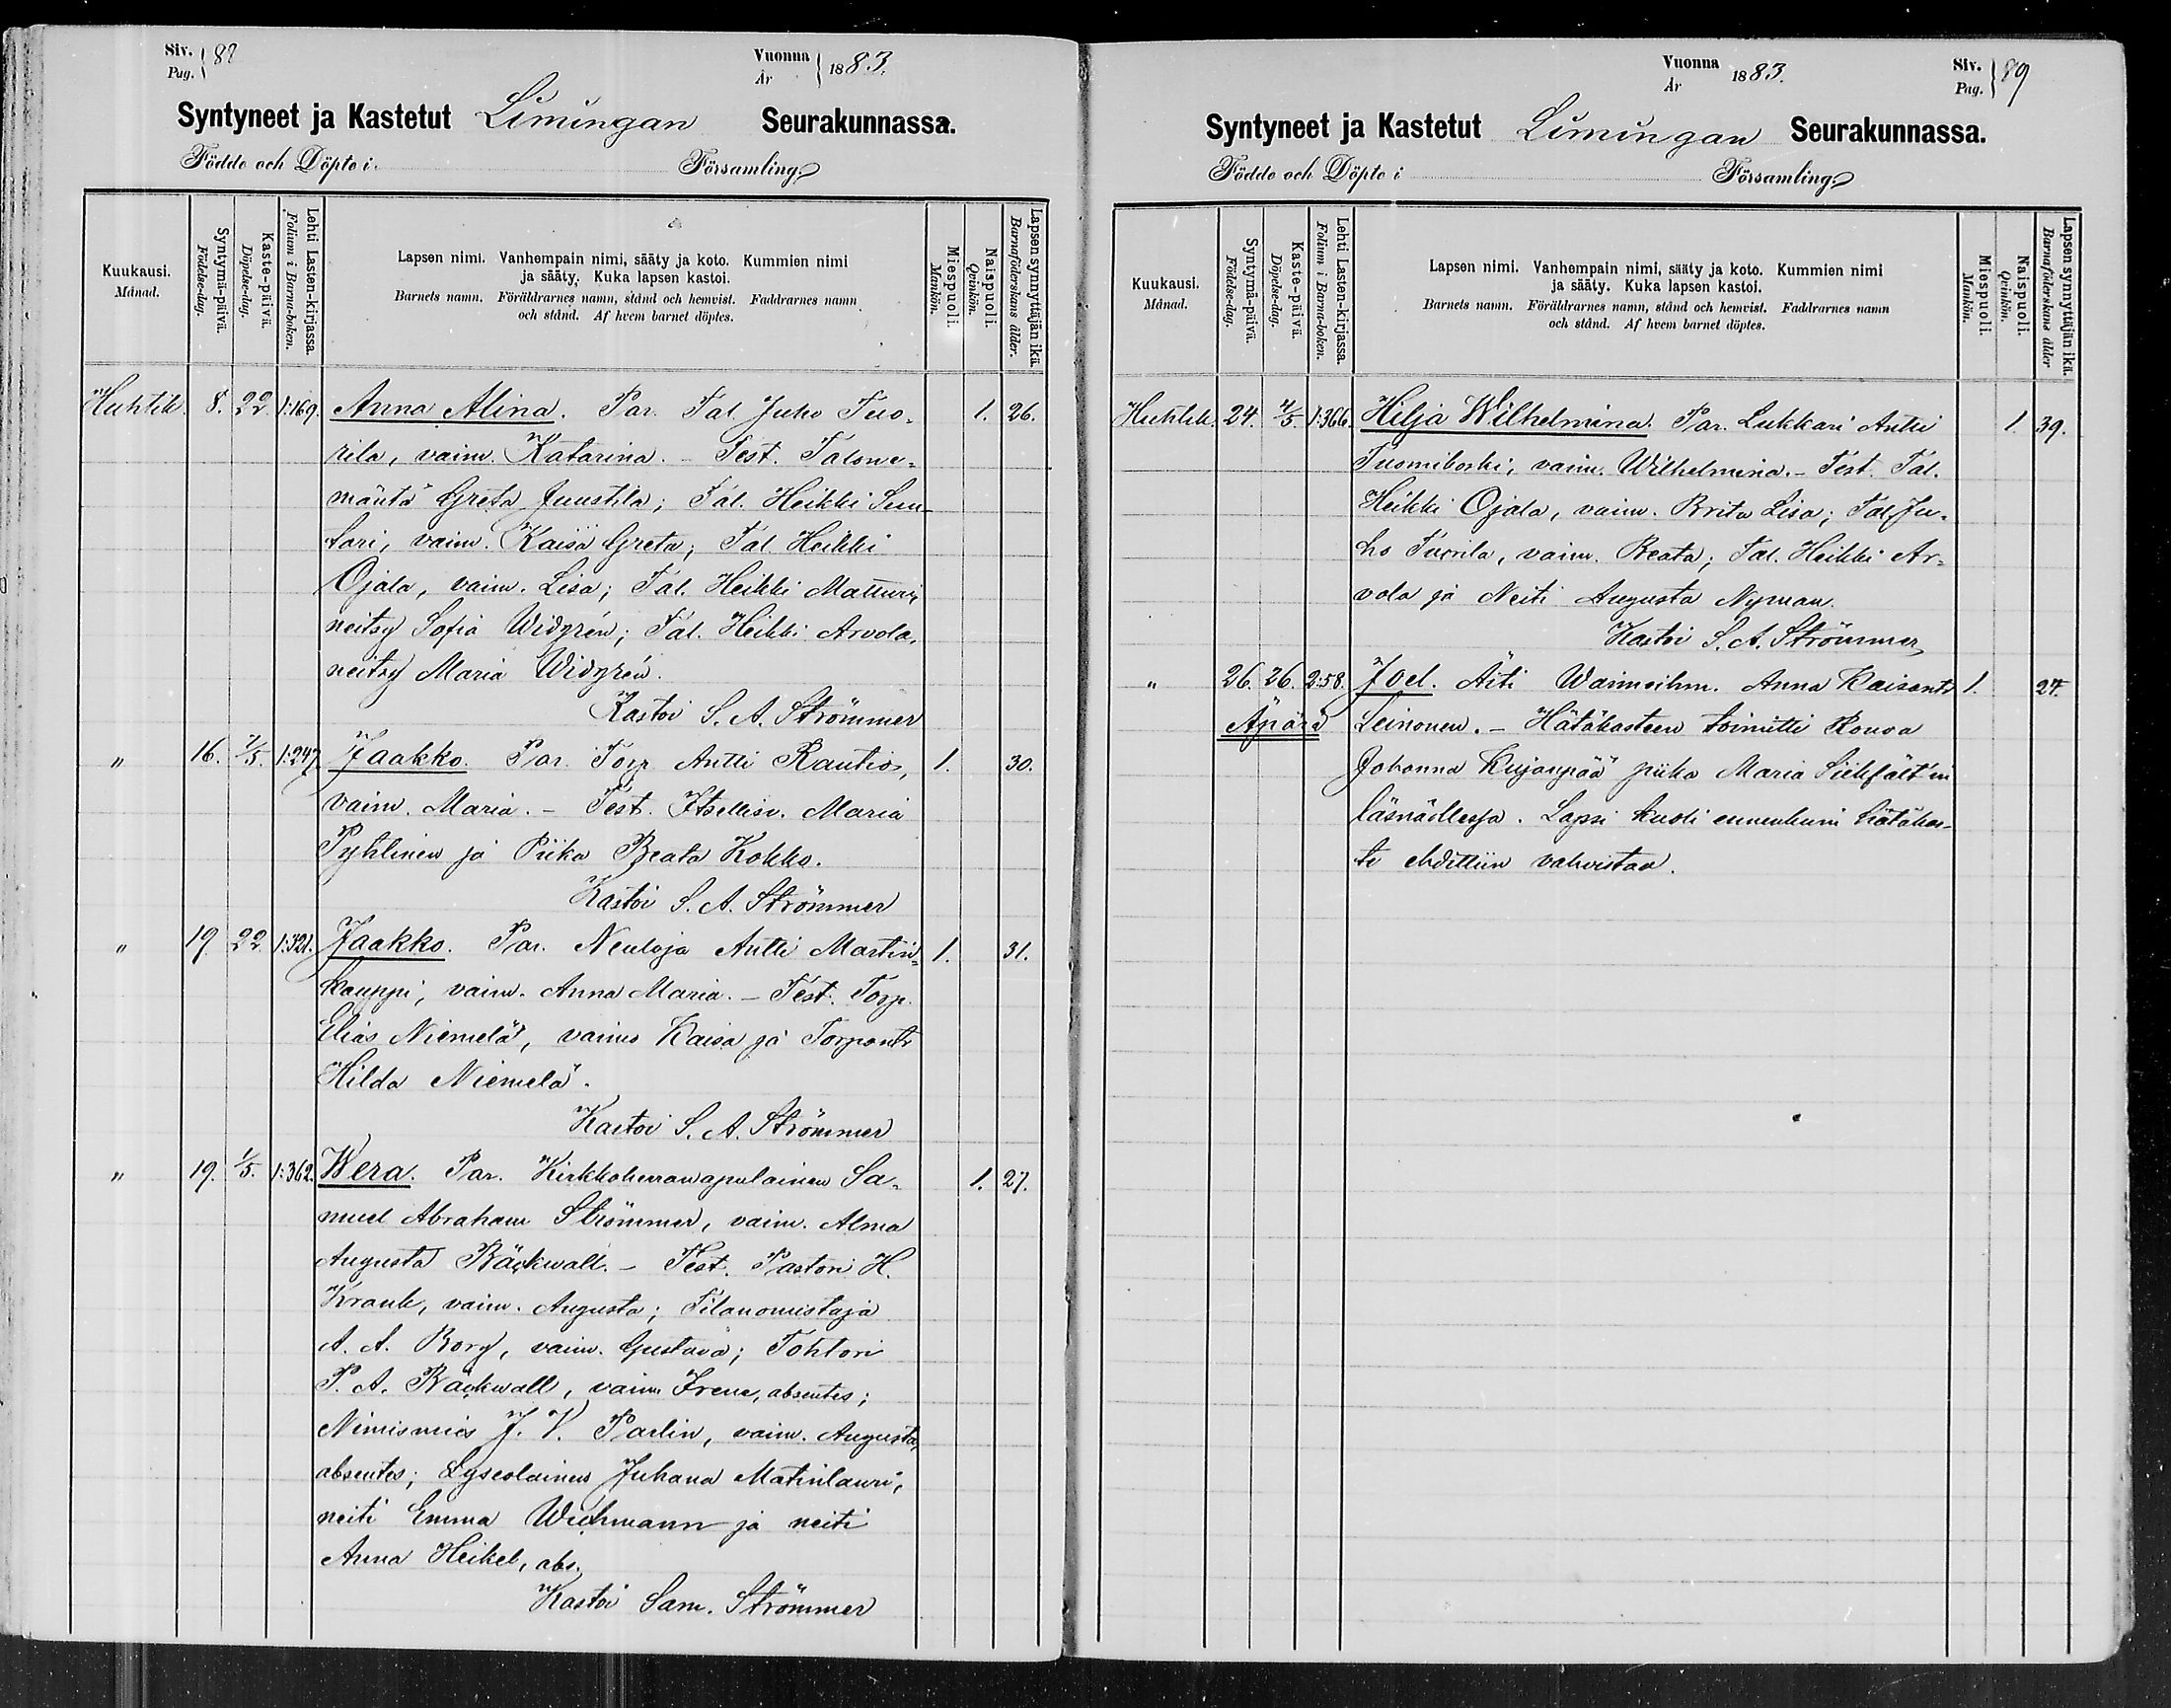 Siv. 88
Pag.
Vuonna 1883.
År
Syntyneet ja Kastetut Limingan Seurakunnassa.
Födde och Döpte i Församling.
Kuukausi.
Månad.
Syntymä-päivä.
Födelse-dag.
Kaste-päivä.
Döpelse-dag.
Lehti Lasten-kirjassa.
Folium i Barna-boken.
Lapsen nimi. Vanhempain nimi, sääty ja koto. Kummien nimi
ja sääty. Kuka lapsen kastoi.
Barnets namn. Föräldrarnes namn, stånd och hemvist. Faddrarnes namn
och stånd. Af hvem barnet döptes.
Miespuoli.
Mankön.
Naispuoli.
Qvinkön.
Lapsen synnyttäjän ikä.
Barnaföderskans ålder.
Huhtik. 8. 22. 1:169. Anna Alina. Par. Tal. Juho Tuo- 1. 26.
rila, vaim. Katarina. – Test. Talone-
mäntä Greta Juustila; Tal. Heikki Suu-
tari, vaim. Kaisa Greta; Tal. Heikki
Ojala, vaim. Lisa; Tal. Heikki Matturi,
neitsy Sofia Widgrén; Tal. Heikki Arvola,
neitsy Maria Widgrén.
Kastoi S. A. Strömmer
" 16. 7/5. 1:247. Jaakko. Par. Torp. Antti Rautio, 1. 30.
vaim. Maria. – Test. Itsellisv. Maria
Pyhtinen ja Piika Beata Kokko.
Kastoi S. A. Strömmer
" 19. 22. 1:321. Jaakko. Par. Neuloja Antti Martin- 1. 31.
kauppi, vaim. Anna Maria. – Test. Torp.
Elias Niemelä, vaimo Kaisa ja Torpantr
Hilda Niemelä.
Kastoi S. A. Strömmer
" 19. 1/5. 1:362. Wera. Par. Kirkkoherranapulainen Sa- 1. 27.
muel Abraham Strömmer, vaim. Alma
Augusta Bäckwall. – Test. Pastori H.
Krank, vaim. Augusta; Tilanomistaja
A. A. Borg, vaim. Gustava; Tohtori
P. A. Bäckwall, vaim Irene, absentes;
Nimismies J. V. Parlin, vaim. Augusta,
absentes; Lyseolainen Juhana Matinlauri,
neiti Emma Wichmann ja neiti
Anna Heikel, abs.
Kastoi Sam. Strömmer
Vuonna 1883.
År
Siv. 89
Pag.
Syntyneet ja Kastetut Limingan Seurakunnassa.
Födde och Döpte i Församling.
Kuukausi.
Månad.
Syntymä-päivä.
Födelse-dag.
Kaste-päivä.
Döpelse-dag.
Lehti Lasten-kirjassa.
Folium i Barna-boken.
Lapsen nimi. Vanhempain nimi, sääty ja koto. Kummien nimi
ja sääty. Kuka lapsen kastoi.
Barnets namn. Föräldrarnes namn, stånd och hemvist. Faddrarnes namn
och stånd. Af hvem barnet döptes.
Miespuoli.
Mankön.
Naispuoli.
Qvinkön.
Lapsen synnyttäjän ikä.
Barnaföderskans ålder
Huhtik. 24. 4/5. 1:366. Hilja Wilhelmina. Par. Lukkari Antti 1. 39.
Tuomikoski, vaim. Wilhelmina. – Test. Tal.
Heikki Ojala, vaim. Brita Lisa; Tal. Ju-
ho Tuorila, vaim. Beata; Tal. Heikki Ar-
vola ja Neiti Augusta Nyman.
Kastoi S. A. Strömmer
" 26. 26. 2:58. Joel. Äiti Waimoihm. Anna Kaisantr 1. 27.
Äpärä Leinonen. – Hätäkasteen toimitti Rouva
Johanna Kujanpää piika Maria
läsnäollessa. Lapsi kuoli ennenkuin hätäkas-
te ehdittiin vahvistaa.